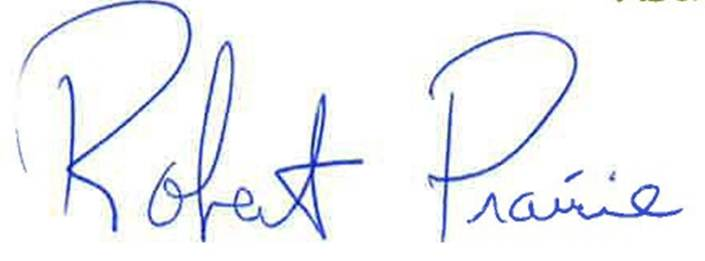 Robert Prairie